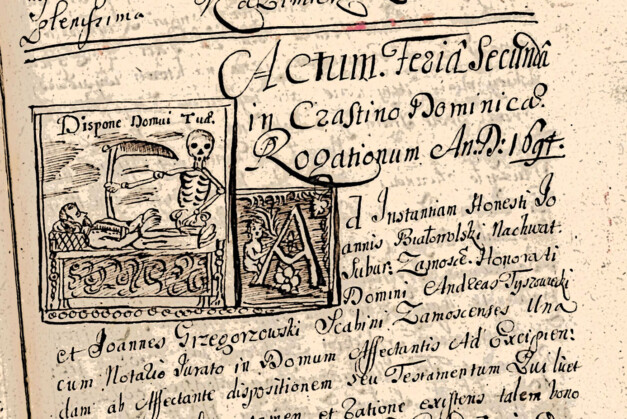 plenissima
Actum. Feria Secunda
in Crastino Dominicæ.
Rogationum An.D: 169
Dispone Domui Tuæ.
Ad Instantiam Honesti Jo
annis Białowolski
Subur: Zamosc. Honorati
Domini Andreas Tyszowski
et Joannes Grzegorzowski Scabini Zamoscenses Una
cum Notario Jurato in Domum Affectantis Ad Excipien:
dam ab Affectante dispositionem seu Testamentum Qui licet
et Ratione existens talem bono